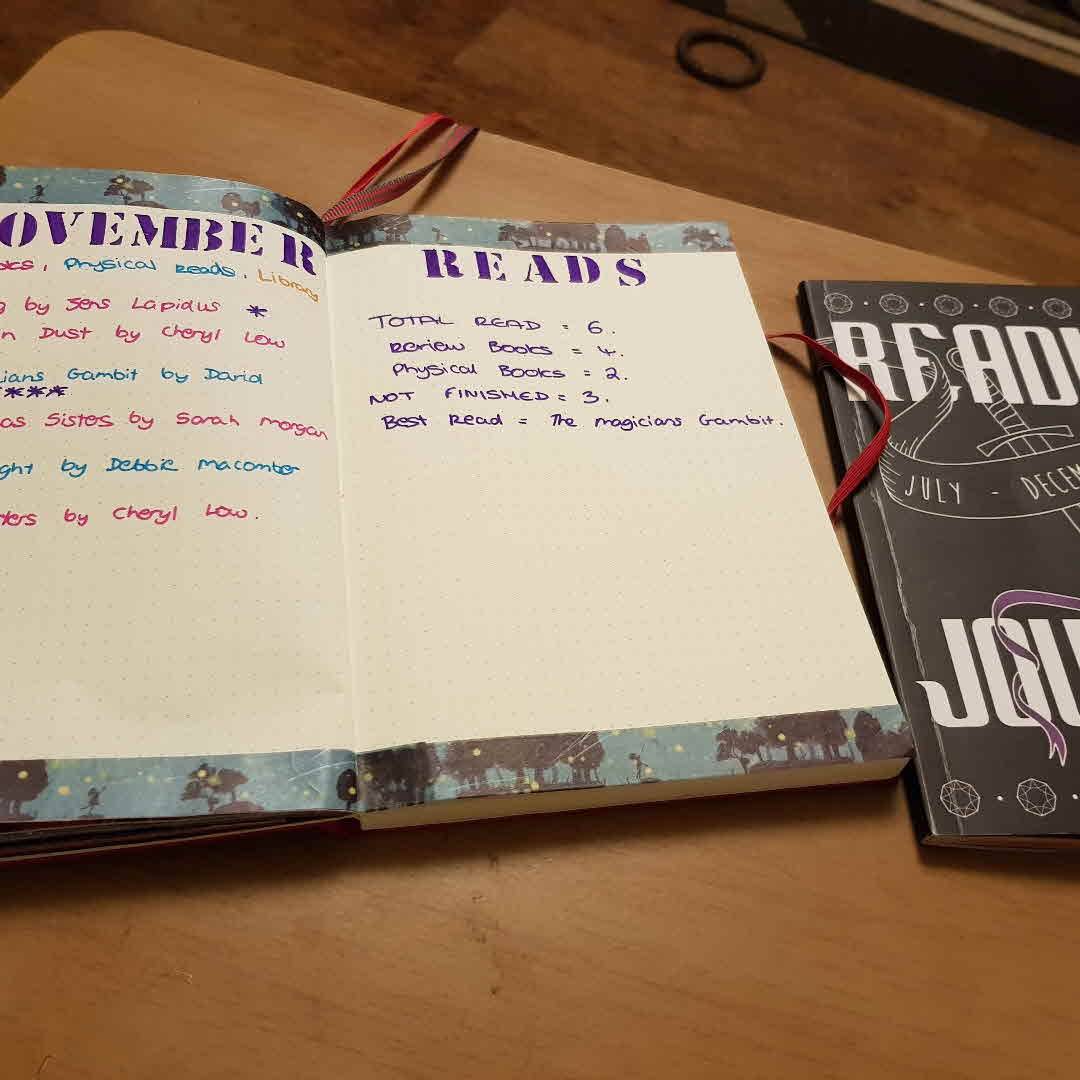 OVEMBER
Physical Reads, Library
by Jens Lapidus *
Dust by Cheryl Low
Gambit by David
****
Sisters by Sarah Morgan
by Debbie Macomber
by Cheryl Low.
READS
TOTAL READ = 6.
Review Books = 4.
Physical Books = 2.
NOT FINISHED = 3.
Best Read = The magicians Gambit.
READI
JULY - DECEM
JOU